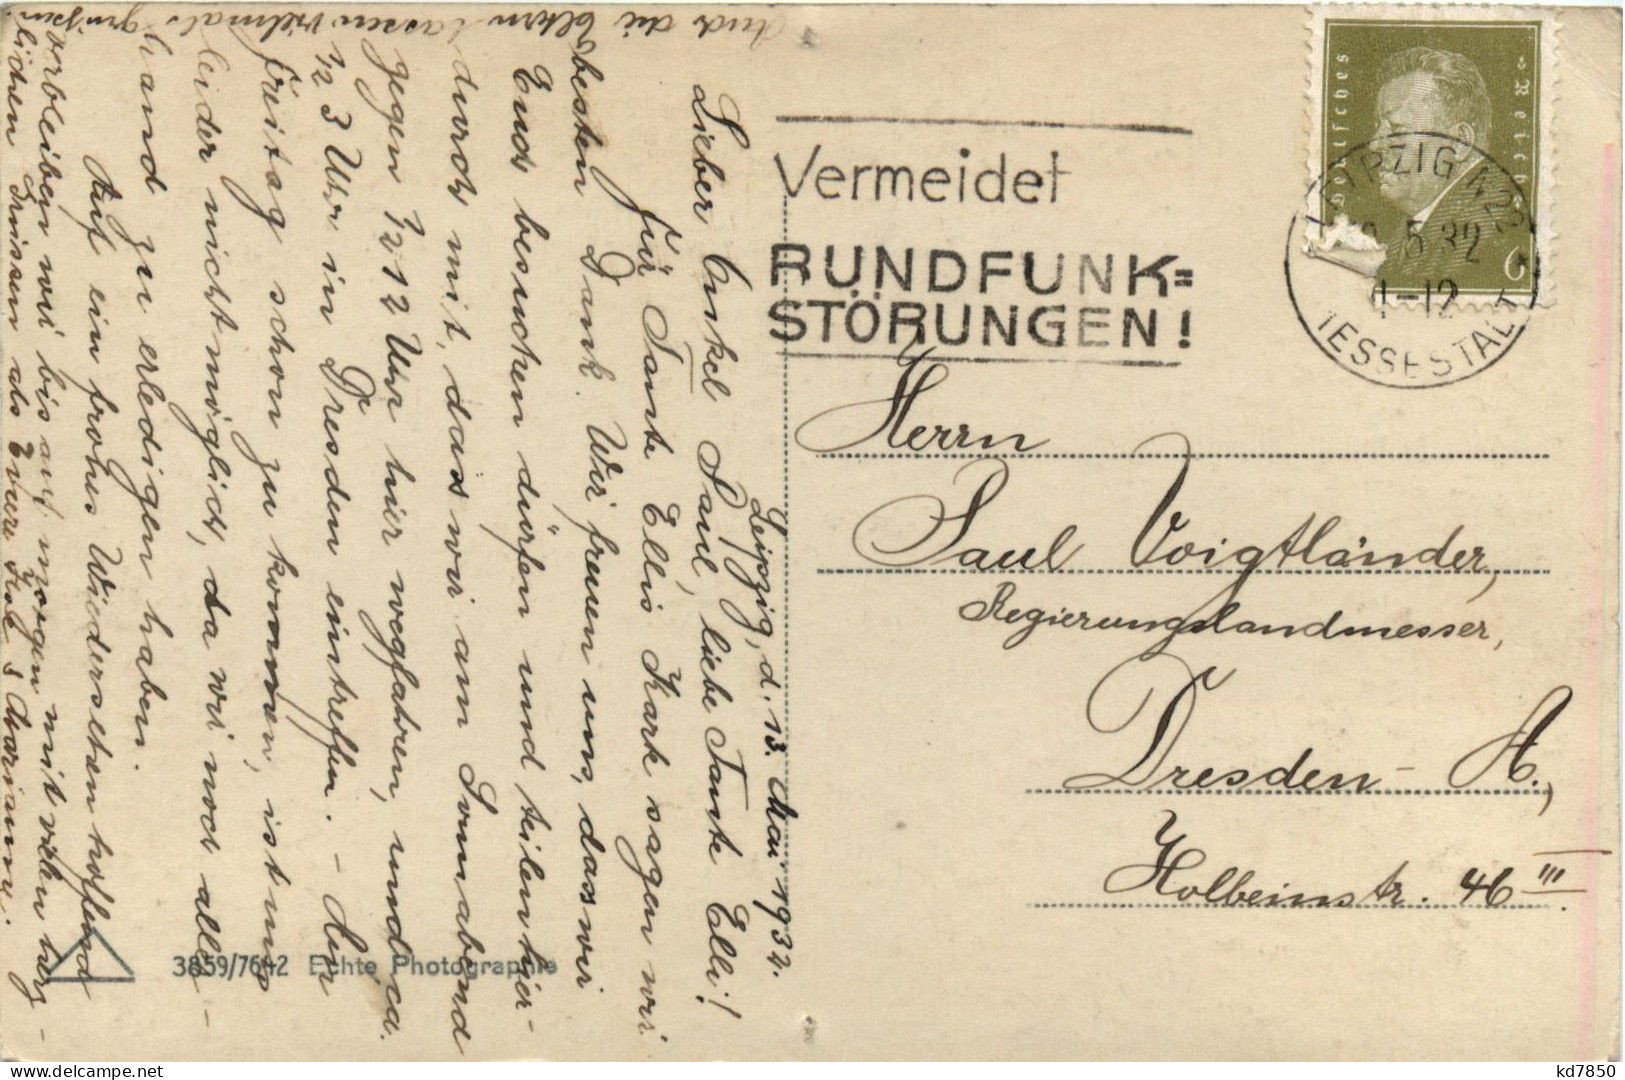 Leipzig, d. 13. Mai 1932.
Lieber Onkel Paul, liebe Tante Elli!
Für Tante Ellis Kark sagen wir
besten Dank. Wir freuen uns, dass wir
Euch besuchen dürfen und teilen hier-
durch mit, dass wir am Sonnabend
gegen 1/2 12 Uhr hier wegfahren, und ca.
1/2 3 Uhr in Dresden eintreffen. – Am
Freitag schon zu kommen, ist uns
leider nicht möglich, da wir noch aller-
hand zu erledigen haben.
Auf ein frohes Wiedersehen hoffend
verbleiben wir bis auf morgen mit vielen herz-
lichen Grüssen als Eure
Auch die Eltern lassen vielmals grüssen
Vermeidet
RUNDFUNK=
STÖRUNGEN!
Deutsches Reich
6
LEIPZIG N22
5.32
11-12
MESSESTADT
Herrn
Paul Voigtländer,
Regierungslandmesser,
Dresden – A.,
Holbeinstr. 46 III.
3859/7642 Echte Photographie
kd7850